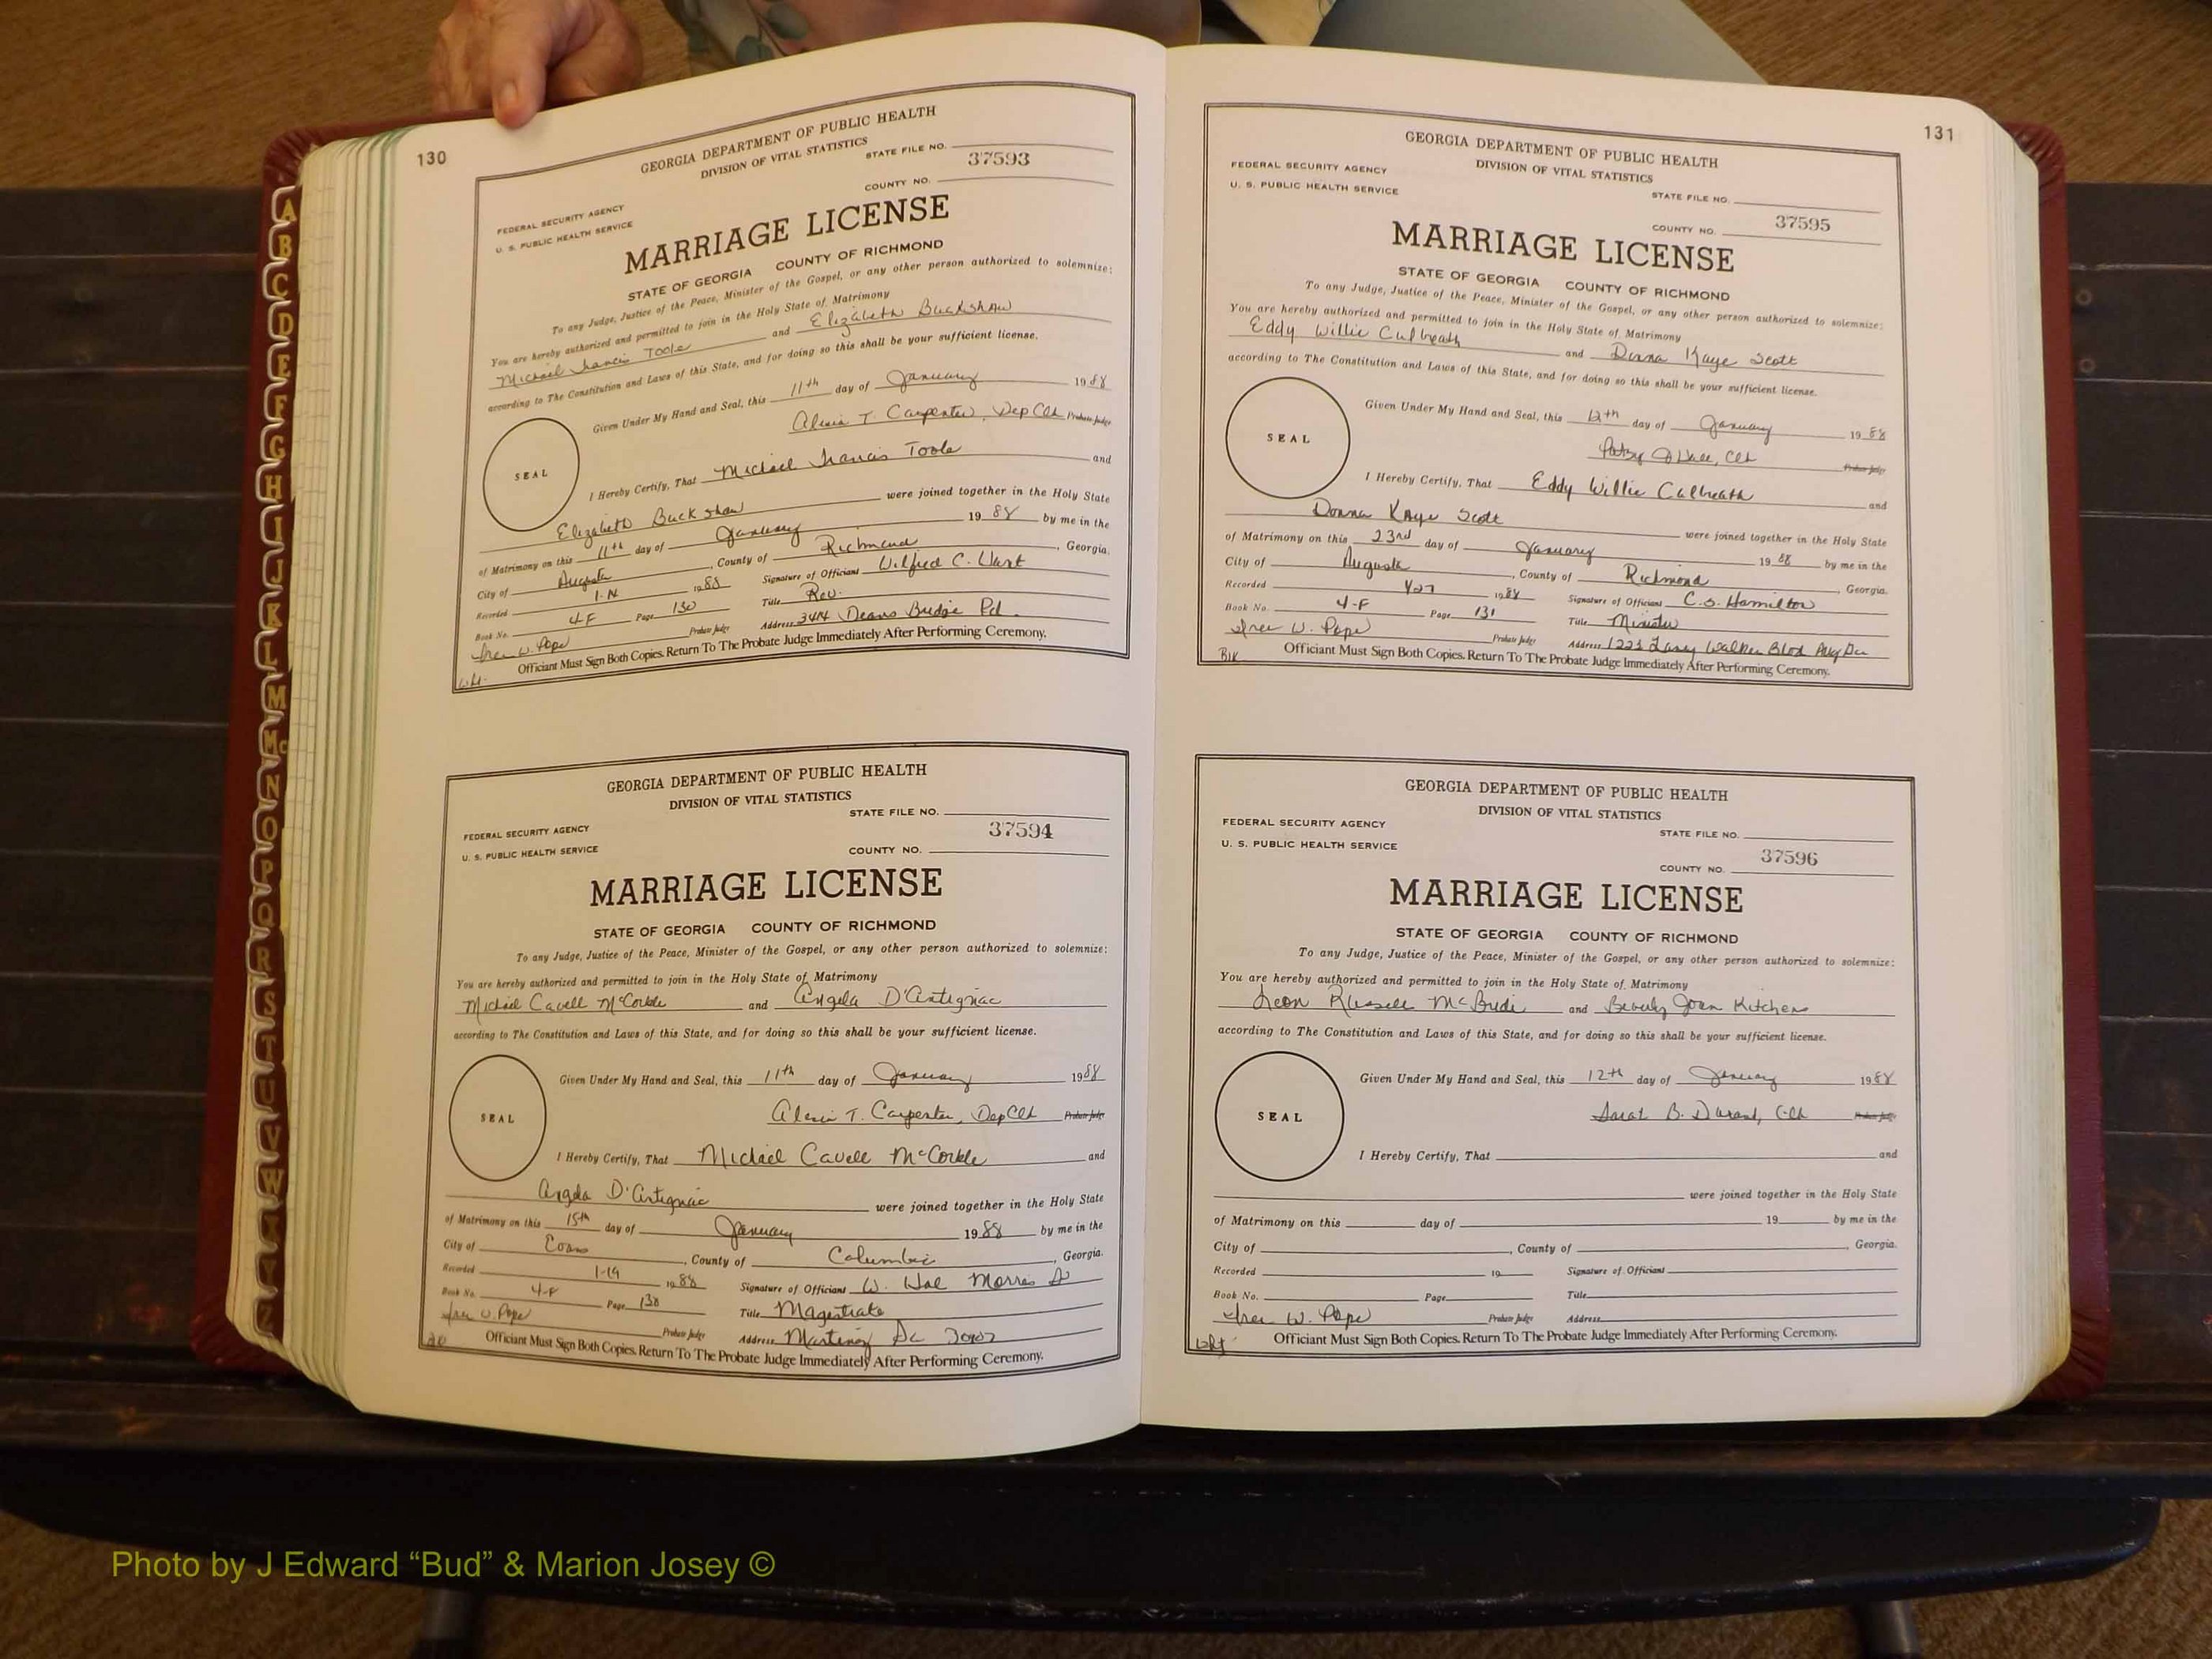 130
GEORGIA DEPARTMENT OF PUBLIC HEALTH
DIVISION OF VITAL STATISTICS
STATE FILE NO.
37593
FEDERAL SECURITY AGENCY
COUNTY NO.
U. S. PUBLIC HEALTH SERVICE
MARRIAGE LICENSE
STATE OF GEORGIA COUNTY OF RICHMOND
To any Judge, Justice of the Peace, Minister of the Gospel, or any other person authorized to solemnize:
You are hereby authorized and permitted to join in the Holy State of Matrimony
Michael Francis Toole and Elizabeth Buckshaw
according to The Constitution and Laws of this State, and for doing so this shall be your sufficient license.
Given Under My Hand and Seal, this 11th day of January 1988
Alexia T. Carpenter, Dep Clk Probate Judge
SEAL
I Hereby Certify, That Michael Francis Toole and
Elizabeth Buckshaw were joined together in the Holy State
of Matrimony on this 11th day of January 1988 by me in the
City of Augusta, County of Richmond, Georgia.
Recorded 1988 Signature of Officiant Wilfred C.
Book No. 4-F Page 130 Title Rev.
W. Pope Probate Judge Address 3414 Deans Bridge Rd.
Officiant Must Sign Both Copies. Return To The Probate Judge Immediately After Performing Ceremony.
GEORGIA DEPARTMENT OF PUBLIC HEALTH
DIVISION OF VITAL STATISTICS
STATE FILE NO.
37594
FEDERAL SECURITY AGENCY
U. S. PUBLIC HEALTH SERVICE
COUNTY NO.
MARRIAGE LICENSE
STATE OF GEORGIA COUNTY OF RICHMOND
To any Judge, Justice of the Peace, Minister of the Gospel, or any other person authorized to solemnize:
You are hereby authorized and permitted to join in the Holy State of Matrimony
Michael Cavell McCorkle and Angela D'Antignac
according to The Constitution and Laws of this State, and for doing so this shall be your sufficient license.
Given Under My Hand and Seal, this 11th day of January 1988
Alexia T. Carpenter, Dep Clk Probate Judge
SEAL
I Hereby Certify, That Michael Cavell McCorkle and
Angela D'Antignac were joined together in the Holy State
of Matrimony on this 15th day of January 1988 by me in the
City of Evans, County of Columbia, Georgia.
Recorded 1-19 1988 Signature of Officiant W. Hal Morris
Book No. 4-F Page 130 Title Magistrate
W. Pope Probate Judge Address Martinez Ga
Officiant Must Sign Both Copies. Return To The Probate Judge Immediately After Performing Ceremony.
131
GEORGIA DEPARTMENT OF PUBLIC HEALTH
DIVISION OF VITAL STATISTICS
FEDERAL SECURITY AGENCY
U. S. PUBLIC HEALTH SERVICE
STATE FILE NO.
37595
COUNTY NO.
MARRIAGE LICENSE
STATE OF GEORGIA COUNTY OF RICHMOND
To any Judge, Justice of the Peace, Minister of the Gospel, or any other person authorized to solemnize:
You are hereby authorized and permitted to join in the Holy State of Matrimony
Eddy Willie Culbreath and Donna Kaye Scott
according to The Constitution and Laws of this State, and for doing so this shall be your sufficient license.
Given Under My Hand and Seal, this 12th day of January 1988
Patsy Clk Probate Judge
SEAL
I Hereby Certify, That Eddy Willie Culbreath and
Donna Kaye Scott were joined together in the Holy State
of Matrimony on this 23rd day of January 1988 by me in the
City of Augusta, County of Richmond, Georgia.
Recorded 1988 Signature of Officiant C.S. Hamilton
Book No. 4-F Page 131 Title Minister
W. Pope Probate Judge Address 1223 Laney Walker Blvd Aug Ga
Blk Officiant Must Sign Both Copies. Return To The Probate Judge Immediately After Performing Ceremony.
GEORGIA DEPARTMENT OF PUBLIC HEALTH
DIVISION OF VITAL STATISTICS
FEDERAL SECURITY AGENCY
STATE FILE NO.
U. S. PUBLIC HEALTH SERVICE
37596
COUNTY NO.
MARRIAGE LICENSE
STATE OF GEORGIA COUNTY OF RICHMOND
To any Judge, Justice of the Peace, Minister of the Gospel, or any other person authorized to solemnize:
You are hereby authorized and permitted to join in the Holy State of Matrimony
Leon Russell McBride and Beverly Joan Kitchens
according to The Constitution and Laws of this State, and for doing so this shall be your sufficient license.
Given Under My Hand and Seal, this 12th day of January 1988
Sarah B. Durand, Clk Probate Judge
SEAL
I Hereby Certify, That and
were joined together in the Holy State
of Matrimony on this day of 19 by me in the
City of , County of , Georgia.
Recorded 19 Signature of Officiant
Book No. Page Title
W. Pope Probate Judge Address
Wht Officiant Must Sign Both Copies. Return To The Probate Judge Immediately After Performing Ceremony.
A
B
C
D
E
F
G
H
I
J
K
L
M
Mc
N
O
P
Q
R
S
T
U
V
W
X
Y
Z
Photo by J Edward “Bud” & Marion Josey ©